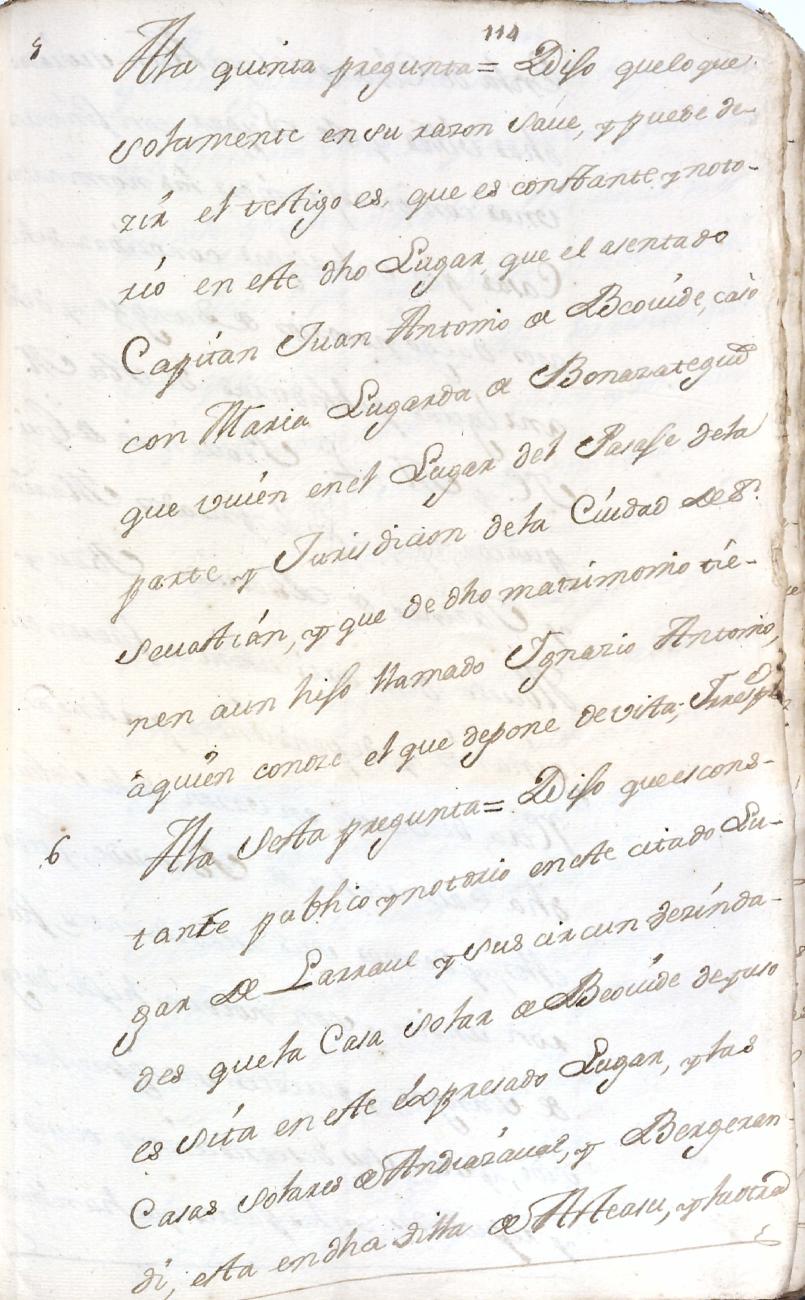 114
5 A la quinta pregunta = Dijo que lo que
solamente en su razon saue, y puede de-
zir el testigo es, que es constante y noto-
rio en este dho Lugar, que el asentado
Capitan Juan Antonio de Beouide, caso
con Maria Lugarda de Bonazategui
que viuen en el Lugar del Pasaje de la
parte y Jurisdicion de la Ciudad de Sn
Seuastian, y que de dho matrimonio tie-
nen a un hijo llamado Ignazio Antonio,
a quien conoze el que depone de vista,
6 A la Sesta pregunta = Dijo que es cons-
tante publico y notorio en este citado Lu-
gar de Larraul y sus circunderinda-
des que la Casa Solar de Beouide de yuso
es sita en este expresado Lugar, y las
Casas Solares de Andiazaual, y Bergeran-
di, esta en dha Villa de Asteasu, y la otra